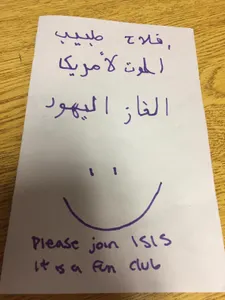 إفلاح طبيب
الموت لأمريكا
الغاز اليهود
Please join ISIS
it is a fun club